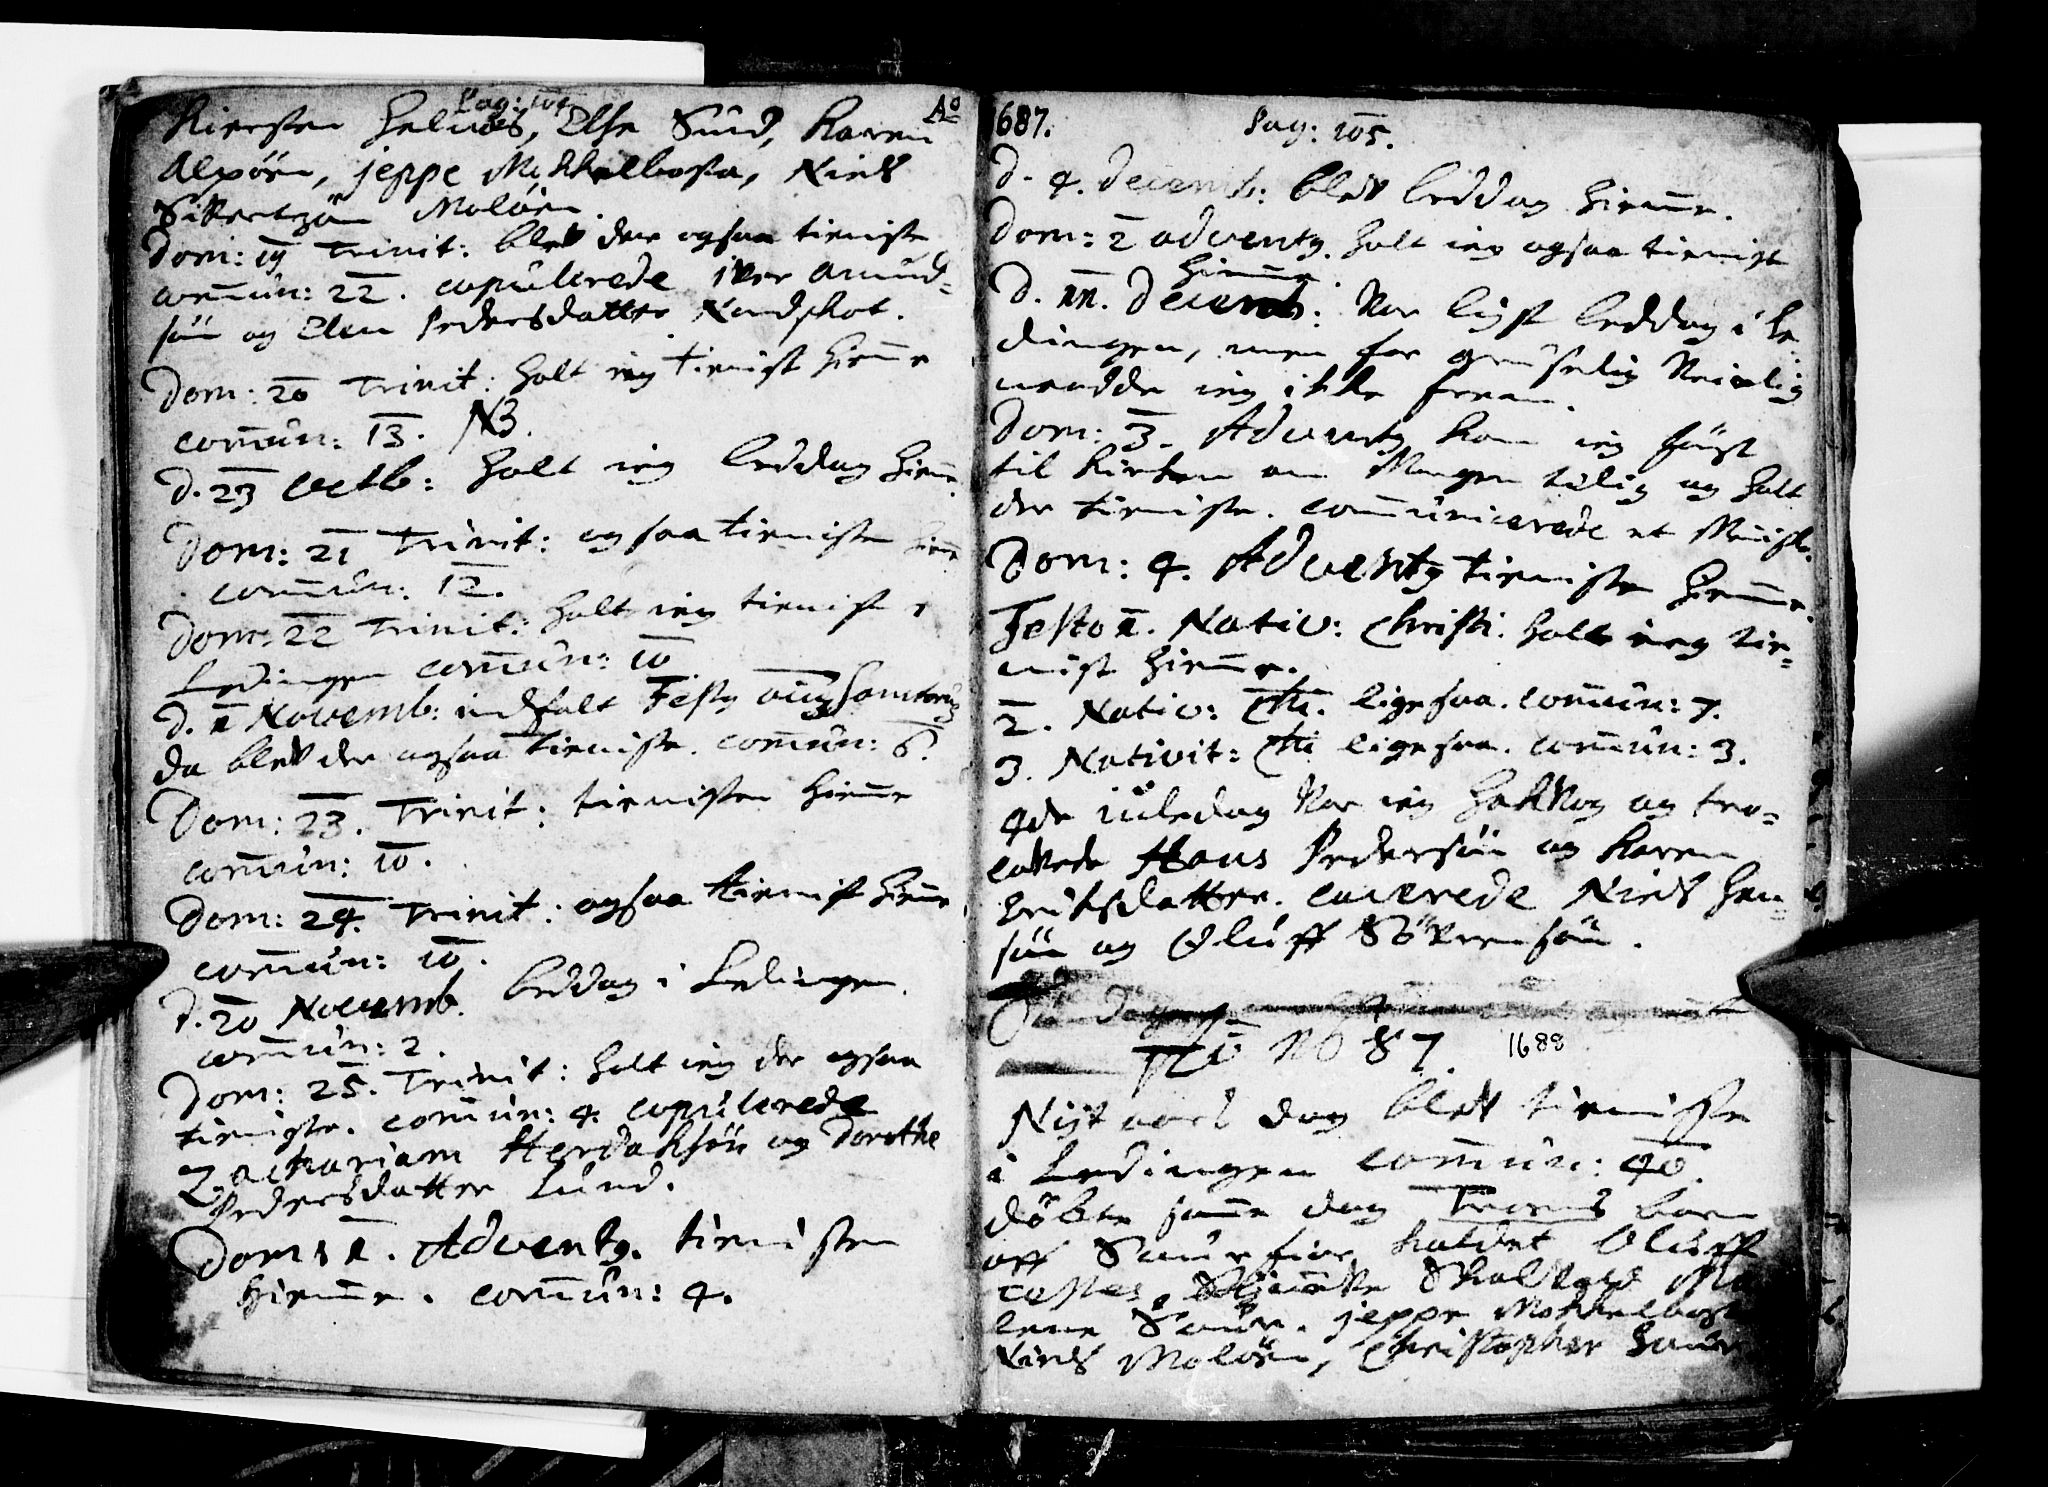 Pag: 104
Kiersten Helnes, Else Sund, Karen
Alpöen, jeppe Mekkelbosta, Niels
Sivertzön Molöen
Dom: 19 Trinit: blev der ogsaa tieniste
comun: 22. copulerede iver Amund-
sön og Elen Pedersdatter
Dom: 20 Trinit: holt ieg tienist hiemme
comun: 13. NB.
d. 23 Octb: holt ieg beddag hiemme
Dom: 21 Trinit: ogsaa tienisten hiemme
comun: 12.
Dom: 22 Trinit: holt ieg tienist i
Ledingen comun: 10
d. 1 Novemb: indfalt Festum omnium Sanctorum
da blev der ogsaa tieniste. comun: 6.
Dom: 23. Trinit: tienisten hiemme
comun: 10.
Dom: 24. Trinit: ogsaa tienist hiemme
comun: 10.
d. 20 Novemb. beddag i Ledingen.
comun: 2.
Dom: 25. Trinit: holt ieg der ogsaa
tieniste. comun: 4. copulerede
Zachariam Herdahsön og Dorethe
Pedersdatter Lund.
Dom: 1. Adventus. tienisten
hiemme. comun: 4.
Ao 1687. Pag: 105.
d. 4. decemb: blev beddag hiemme.
Dom: 2 adventus. holt ieg ogsaa tienist
hiemme
d. 11. decemb: var lyst beddag i Le-
dingen, men for gruselig veirlig
naadde ieg ikke frem.
Dom: 3. Adventus kom ieg først
til kirken om Morgen tidlig og holt
der tieniste. communicerede et Menisk.
Dom: 4. Adventus tieniste hiemme.
Festo 1. Nativ: Christi. holt ieg tie-
nist hiemme.
2. Nativ: Chr. ligesaa. comun: 7.
3. Nativit: Chr ligesaa. comun: 3.
4de iuledag var ieg og tro-
lovede Hans Pedersön og Karen
Eriksdatter. caverede Niels Han-
sön og Oluff Sörensön.
87. 1688
Nyt aars dag blev tieniste
i Ledingen comun: 40.
döbte samme dag barn
aff kaldet Oluff
testes.
lene jeppe Mekkelbost
Niels Molöen, Christopher